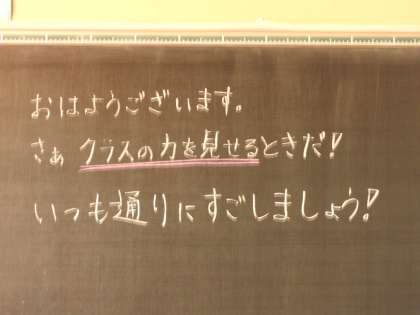 おはようございます。
さぁ クラスの力を見せるときだ!
いつも通りにすごしましょう!